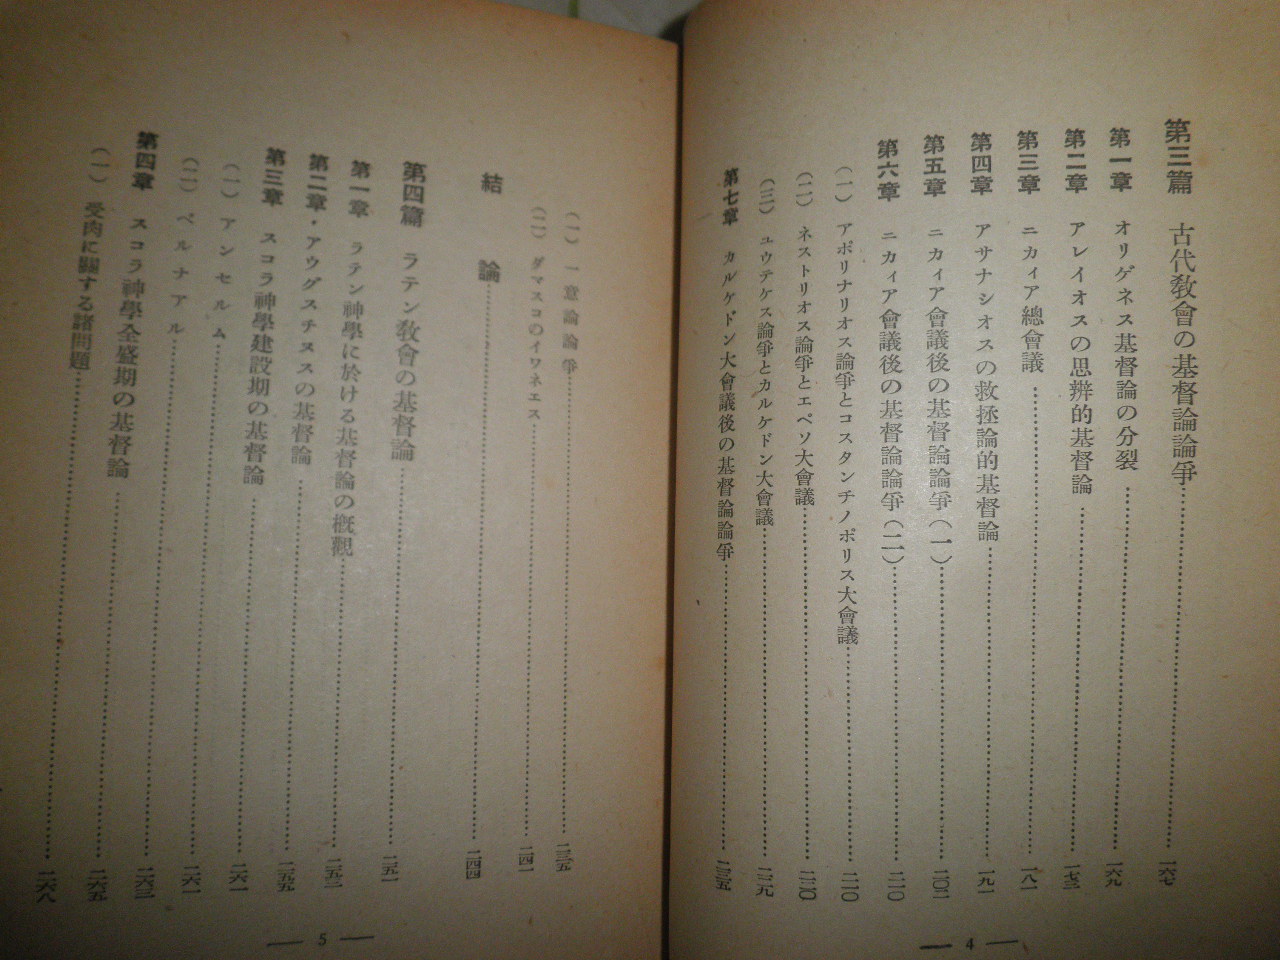 第三篇 古代敎會の基督論論爭……一六七
第一章 オリゲネス基督論の分裂……一六九
第二章 アレイオスの思辨的基督論……一七三
第三章 ニカィア總會議……一八一
第四章 アサナシオスの救拯論的基督論……一九一
第五章 ニカィア會議後の基督論論爭(一)……二〇二
第六章 ニカィア會議後の基督論論爭(二)……二一〇
(一) アポリナリオス論爭とコスタンチノポリス大會議……二一〇
(二) ネストリオス論爭とエペソ大會議……二二〇
(三) ユウテケス論爭とカルケドン大會議……二二九
第七章 カルケドン大會議後の基督論論爭……二三五
— 4 —
(一) 一意論論爭……二三五
(二) ダマスコのイワネエス……二四一
結論……二四四
第四篇 ラテン敎會の基督論……二五一
第一章 ラテン神學に於ける基督論の槪觀……二五三
第二章・アウグスチヌスの基督論……二五五
第三章 スコラ神學建設期の基督論……二六一
(一) アンセルム……二六一
(二) ベルナアル……二六三
第四章 スコラ神學全盛期の基督論……二六五
(一) 受肉に關する諸問題……二六八
— 5 —